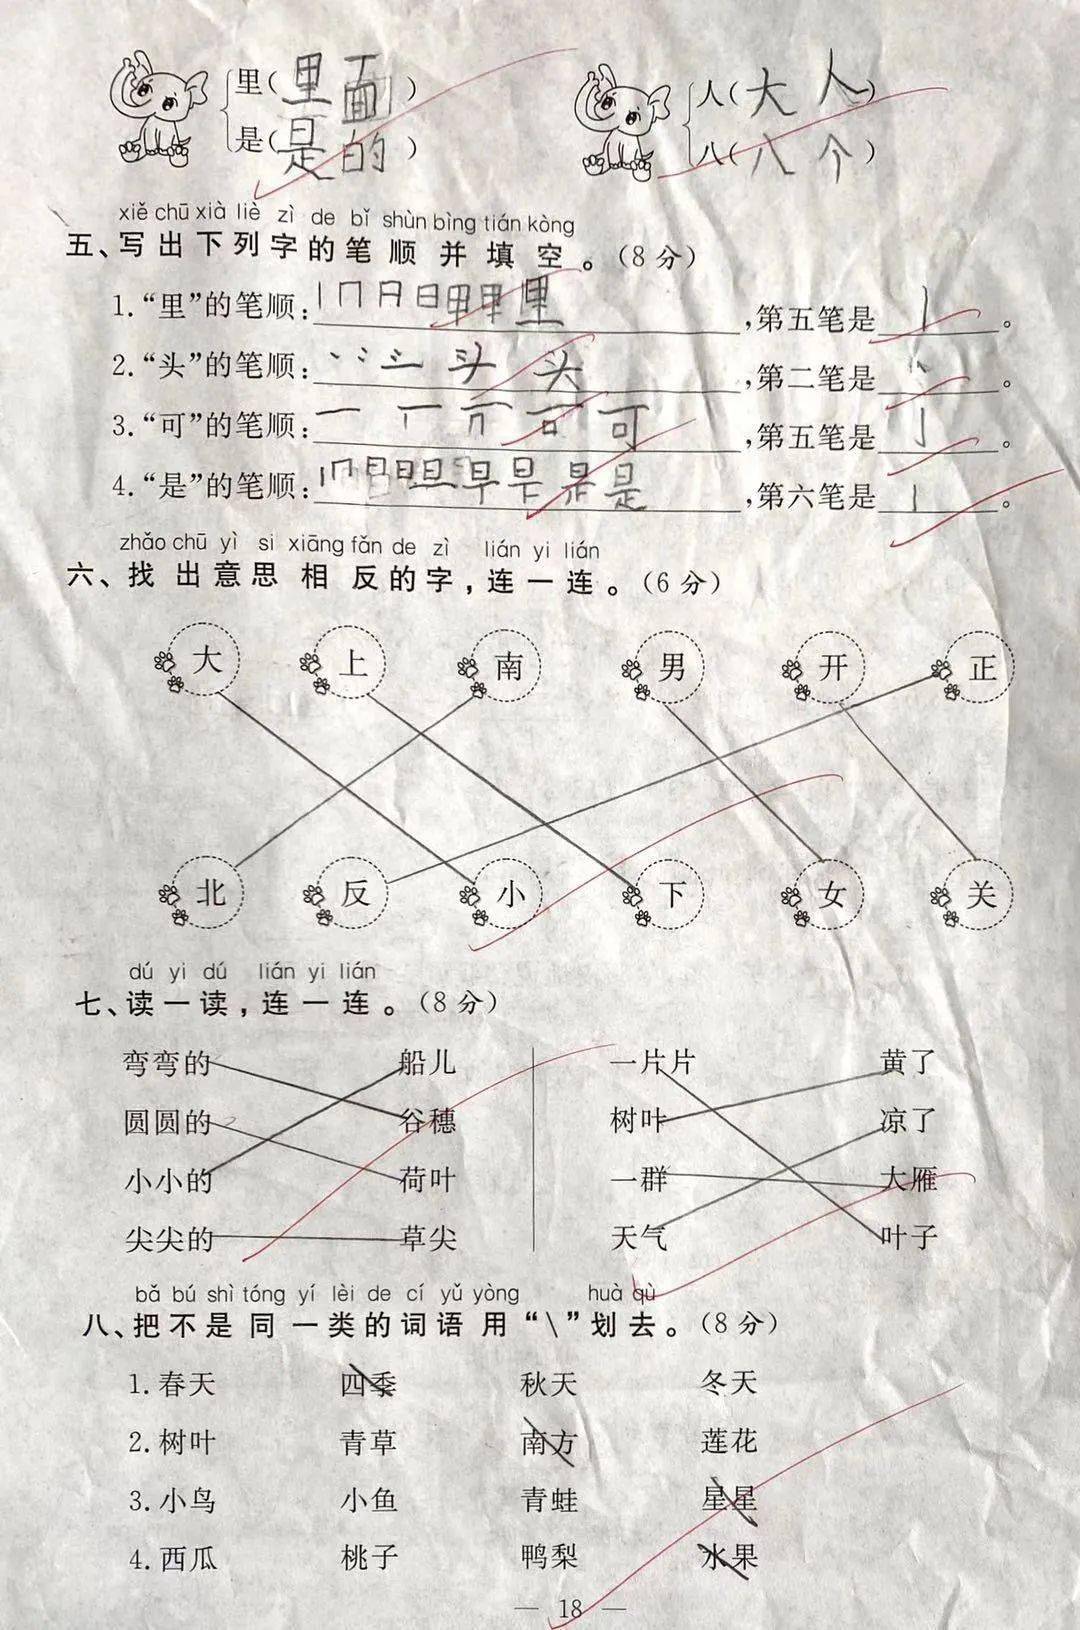 里(里面) 人(大人)
是(是的) 八(八个)
xiě chū xià liè zì de bǐ shùn bìng tián kòng
五、写出下列字的笔顺并填空。(8分)
1.“里”的笔顺: 丨 冂 日 日 甲 甲 里 ,第五笔是丨。
2.“头”的笔顺: 丶 头 头 ,第二笔是丶。
3.“可”的笔顺: 一 丁 可 可 ,第五笔是亅。
4.“是”的笔顺: 丨 冂 日 旦 早 是 是 ,第六笔是丨。
zhǎo chū yì si xiāng fǎn de zì lián yi lián
六、找出意思相反的字,连一连。(6分)
大 上 南 男 开 正
北 反 小 下 女 关
dú yi dú lián yi lián
七、读一读,连一连。(8分)
弯弯的 船儿 一片片 黄了
圆圆的 谷穗 树叶 凉了
小小的 荷叶 一群 大雁
尖尖的 草尖 天气 叶子
bǎ bú shì tóng yí lèi de cí yǔ yòng huà qù
八、把不是同一类的词语用“\”划去。(8分)
1.春天 四季 秋天 冬天
2.树叶 青草 南方 莲花
3.小鸟 小鱼 青蛙 星星
4.西瓜 桃子 鸭梨 水果
— 18 —